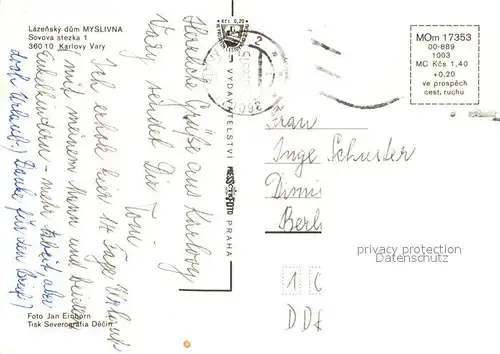 Lázeňský dům MYSLIVNA
Sovova stezka 1
360 10 Karlovy Vary
Herzliche Grüße aus Karlovy
Vary sendet Dir
Toni
Ich erhol hier 14 Tage Urlaub
mit meinem Mann und beiden
Enkelkindern - mehr Arbeit, aber
doch Urlaub! Danke für den Brief!
Foto Jan Einhorn
Tisk Severografia Děčín
VYDAVATELSTVÍ PRESSFOTO PRAHA
Kčs 0,20
MOm 17353
00-889
1003
MC Kčs 1,40
+0,20
ve prospěch
cest. ruchu
Frau
Inge Schuster
Dimi
Berl
1
DD
privacy protection
Datenschutz